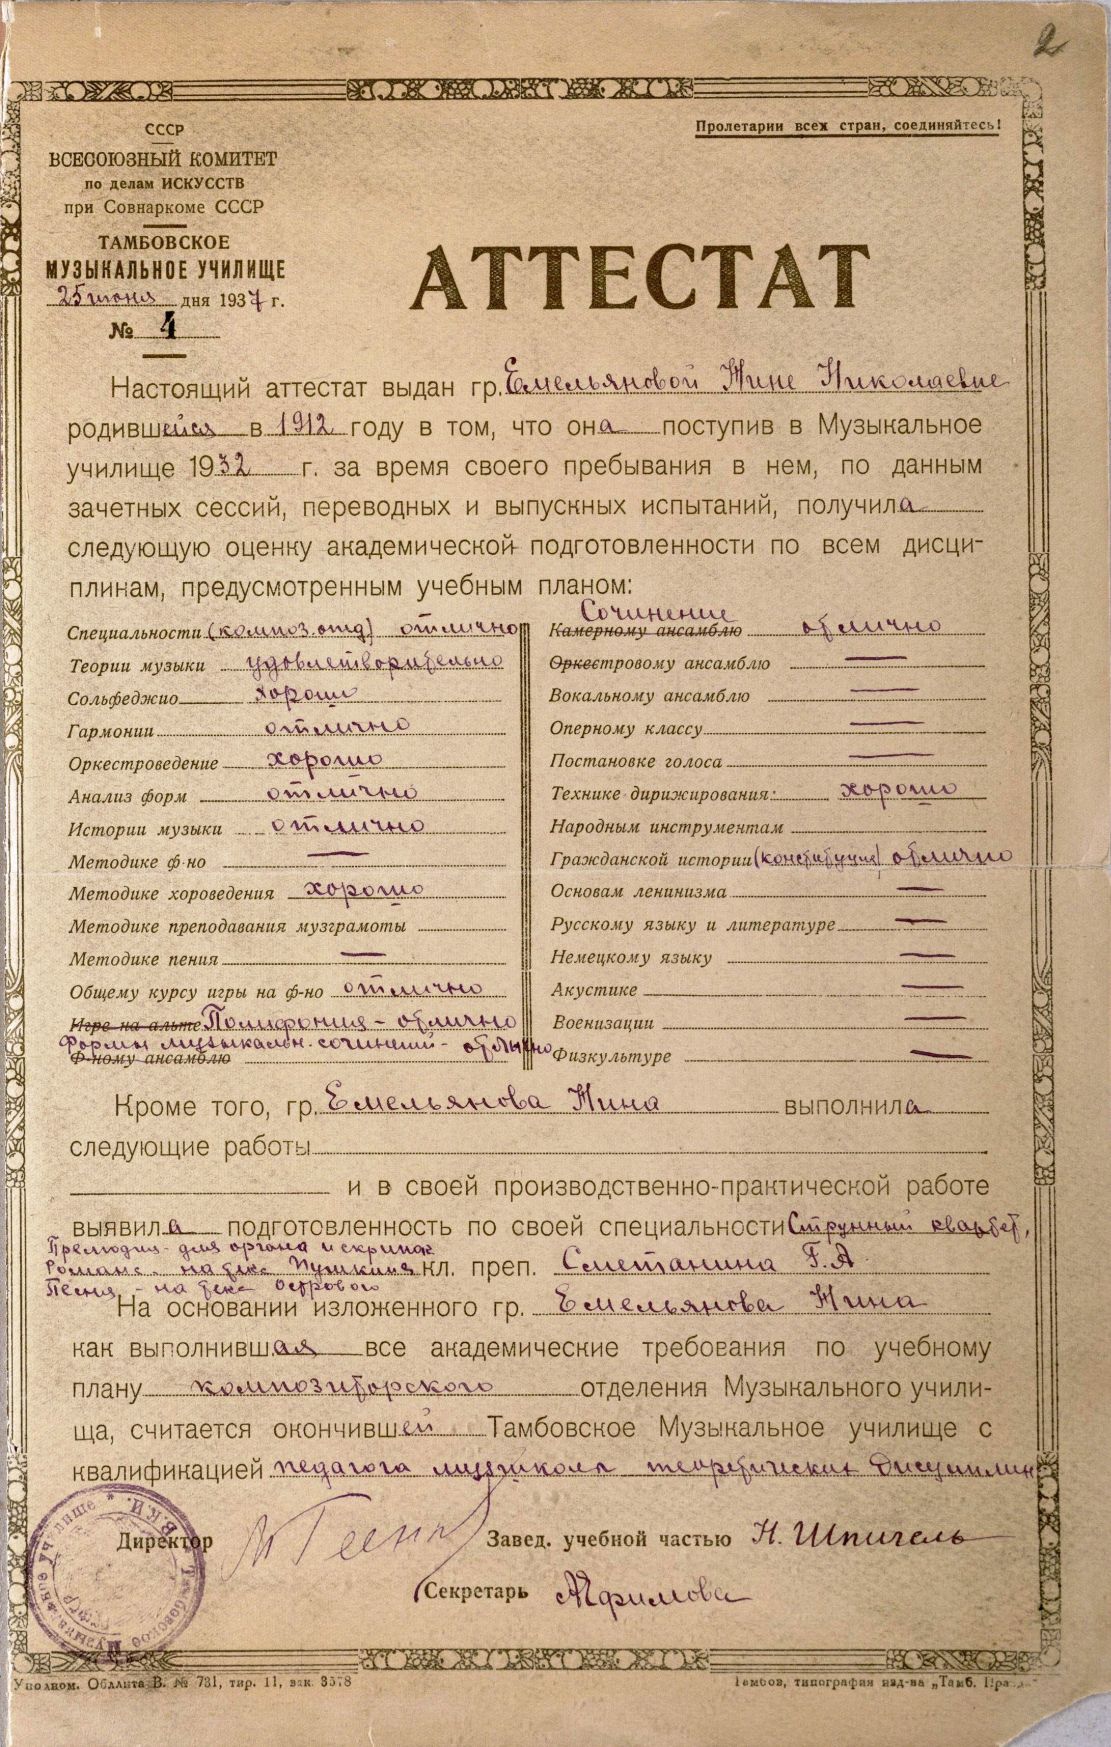 2
Пролетарии всех стран, соединяйтесь!
СССР
ВСЕСОЮЗНЫЙ КОМИТЕТ
по делам ИСКУССТВ
при Совнаркоме СССР
ТАМБОВСКОЕ
МУЗЫКАЛЬНОЕ УЧИЛИЩЕ
25 июня дня 1937 г.
№ 4
АТТЕСТАТ
Настоящий аттестат выдан гр. Емельяновой Нине Николаевне
родившейся в 1912 году в том, что она поступив в Музыкальное
училище 1932 г. за время своего пребывания в нем, по данным
зачетных сессий, переводных и выпускных испытаний, получила
следующую оценку академической подготовленности по всем дисци-
плинам, предусмотренным учебным планом:
Специальности (композ. отд) отлично
Теории музыки удовлетворительно
Сольфеджио хорошо
Гармонии отлично
Оркестроведение хорошо
Анализ форм отлично
Истории музыки отлично
Методике ф-но —
Методике хороведения хорошо
Методике преподавания музграмоты
Методике пения —
Общему курсу игры на ф-но отлично
Игре на альте Полифония - отлично
Формы музыкальн. сочинений - отлично
Ф-ному ансамблю
Сочинение
Камерному ансамблю отлично
Оркестровому ансамблю —
Вокальному ансамблю —
Оперному классу —
Постановке голоса —
Технике дирижирования: хорошо
Народным инструментам
Гражданской истории (конституция) отлично
Основам ленинизма —
Русскому языку и литературе —
Немецкому языку —
Акустике —
Военизации —
Физкультуре —
Кроме того, гр. Емельянова Нина выполнила
следующие работы
и в своей производственно-практической работе
выявила подготовленность по своей специальности Струнный квартет,
Прелюдия - для органа и скрипок
Романс - на текс Пушкина кл. преп. Сметанина Г. А.
Песня - на текс Острового
На основании изложенного гр. Емельянова Нина
как выполнившая все академические требования по учебному
плану композиторского отделения Музыкального учили-
ща, считается окончившей Тамбовское Музыкальное училище с
квалификацией педагога музшколы теоретических дисциплин
Директор
Завед. учебной частью Н. Шпигель
Секретарь
Тамбовское Музыкальное Училище * В.К.И.
Уполном. Обллита В. № 731, тир. 11, зак. 3578
Тамбов, типография изд-ва „Тамб. Правда"